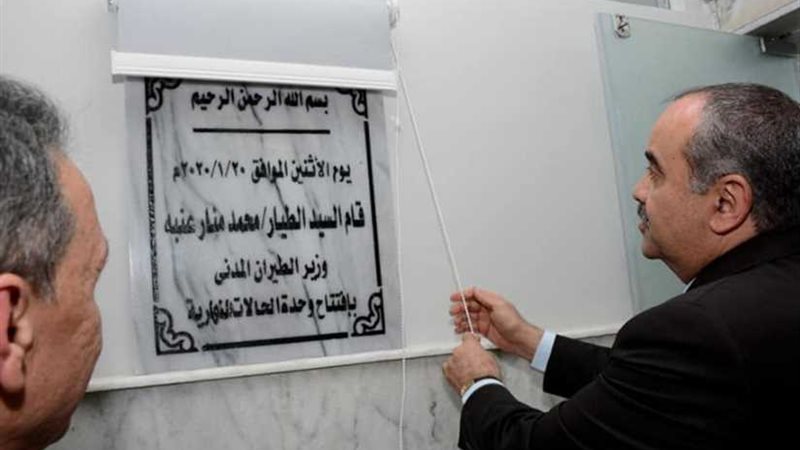 بسم الله الرحمن الرحيم
يوم الأثنين الموافق ٢٠٢٠/١/٢٠م
قام السيد الطيار/محمد منار عنبه
وزير الطيران المدنى
بإفتتاح وحدة الحالات